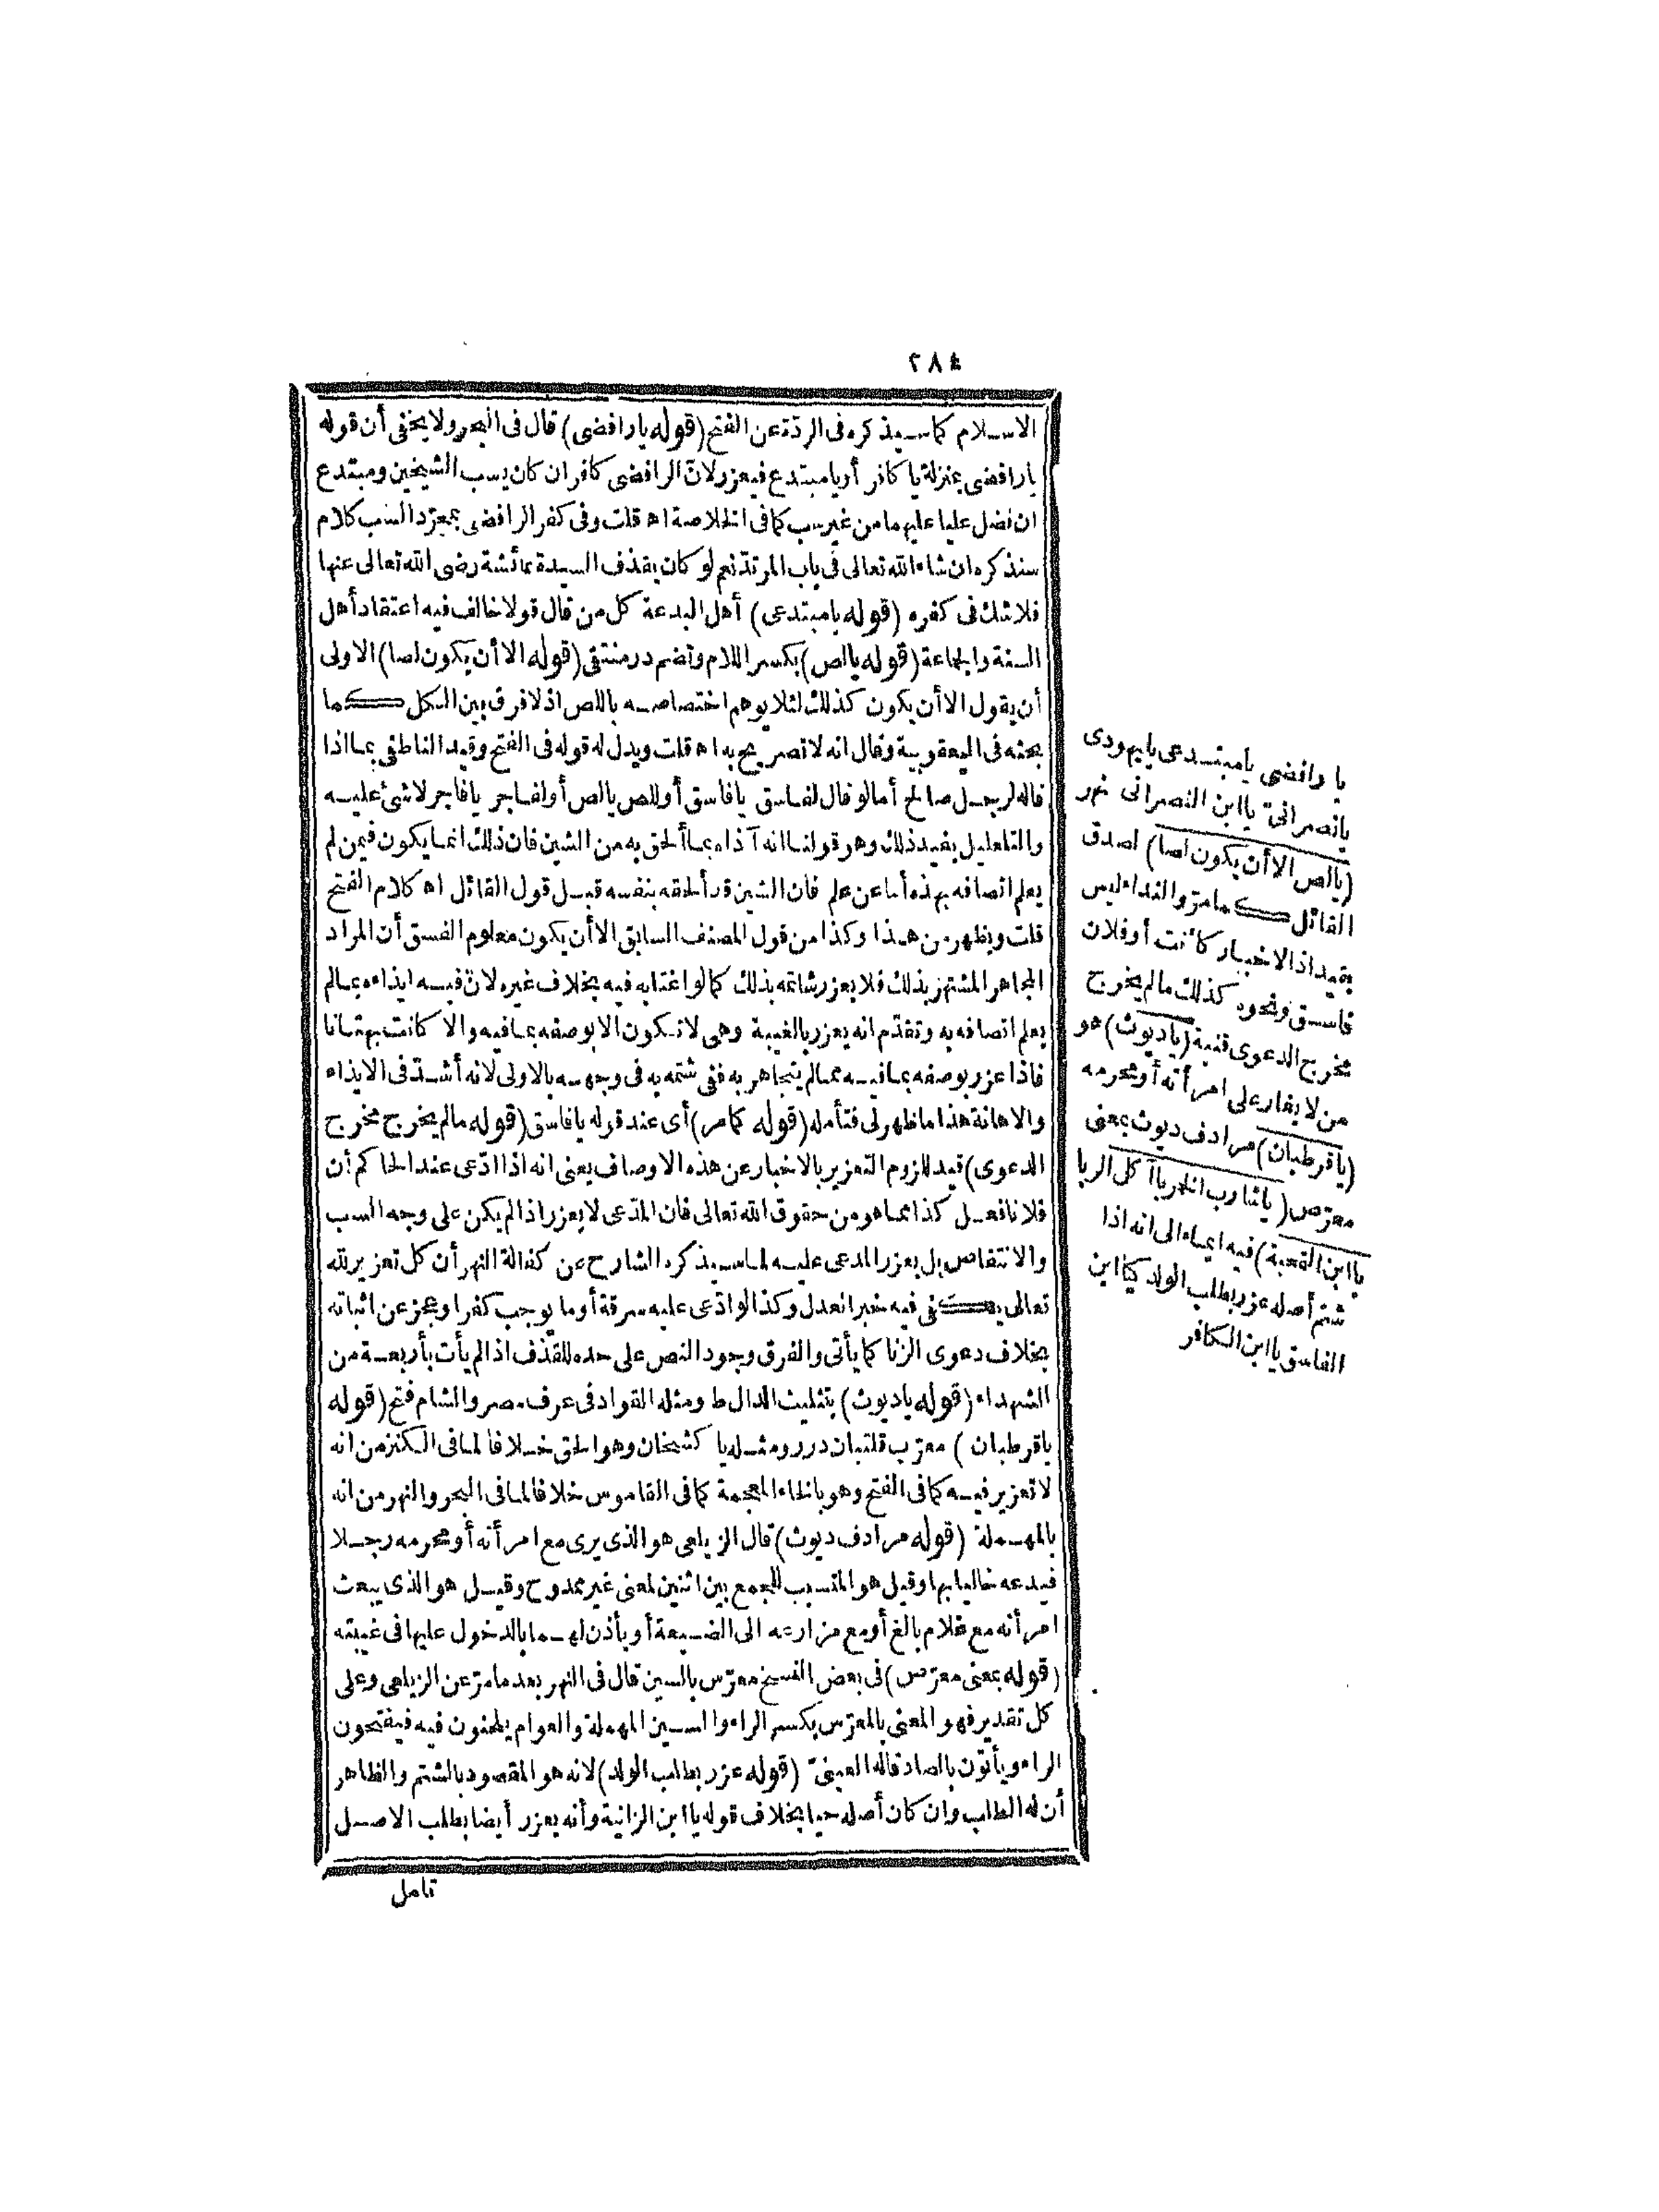 ٢٨٤
الاسلام كما سيذكره فى الردّة عن الفتح (قوله يارافضى) قال فى البحر ولا يخفى أن قوله
يارافضى بمنزلة يا كافر أو يا مبتدع فيعزر لانّ الرافضى كافر ان كان يسب الشيخين ومبتدع
ان فضل عليا عليهما من غير سب كما فى الخلاصة اه قلت وفى كفر الرافضى بمجرّد السب كلام
سنذكره ان شاء الله تعالى فى باب المرتدّ نعم لو كان يقذف السيدة عائشة رضى الله تعالى عنها
فلا شك فى كفره (قوله يا مبتدعى) أهل البدعة كل من قال قولا خالف فيه اعتقاد أهل
السنة والجماعة (قوله يالص) بكسر اللام وتضم در منتقى (قوله الا أن يكون لصا) الاولى
أن يقول الا أن يكون كذلك لئلا يوهم اختصاصه باللص اذ لا فرق بين الكل كما
بحثه فى اليعقوبية وقال انه لا تصريح به اه قلت ويدل له قوله فى الفتح وقيد الناطفى بما اذا
قاله لرجل صالح أما لو قال لفاسق يا فاسق أو للص يالص أو لفاجر يا فاجر لا شئ عليه
والتعليل يفيد ذلك وهو قولنا انه آذاه بما ألحق به من الشين فان ذلك انما يكون فيمن لم
يعلم اتصافه بهذه أما من علم فان الشين قد ألحقه بنفسه قبل قول القائل اه كلام الفتح
قلت ويظهر من هذا وكذا من قول المصنف السابق الا أن يكون معلوم الفسق أن المراد
المجاهر المشتهر بذلك فلا يعزر شاتمه بذلك كما لو اغتابه فيه بخلاف غيره لانّ فيه ايذاءه بما لم
يعلم اتصافه به وتقدّم انه يعزر بالغيبة وهى لا تكون الا بوصفه بما فيه والا كانت بهتانا
فاذا عزر بوصفه بما فيه مما لم يتجاهر به ففى شتمه به فى وجهه بالاولى لانه أشدّ فى الايذاء
والاهانة هذا ما ظهر لى فتأمله (قوله كما مر) أى عند قوله يا فاسق (قوله ما لم يخرج مخرج
الدعوى) قيد للزوم التعزير بالاخبار عن هذه الاوصاف يعنى انه اذا ادّعى عند الحاكم أن
فلانا فعل كذا مما هو من حقوق الله تعالى فان المدّعى لا يعزر اذا لم يكن على وجه السب
والانتقاص بل يعزر المدعى عليه لما سيذكره الشارح عن كفالة النهر أن كل تعزير لله
تعالى يكفى فيه خبر العدل وكذا لو ادّعى عليه سرقة أو ما يوجب كفرا وعجز عن اثباته
بخلاف دعوى الزنا كما يأتى والفرق وجود النص على حده للقذف اذا لم يأت بأربعة من
الشهداء (قوله ياديوث) بتثليث الدال ط ومثله القواد فى عرف مصر والشام فتح (قوله
يا قرطبان) معرّب قلتبان درر ومثله يا كشخان وهو الحق خلافا لما فى الكنز من انه
لا تعزير فيه كما فى الفتح وهو بالخاء المعجمة كما فى القاموس خلافا لما فى البحر والنهر من انه
بالمهملة (قوله مرادف ديوث) قال الزيلعى هو الذى يرى مع امرأته أو محرمه رجلا
فيدعه خاليا بها وقيل هو المتسبب للجمع بين اثنين لمعنى غير ممدوح وقيل هو الذى يبعث
امرأته مع غلام بالغ أو مع مزارعه الى الضيعة أو يأذن لهما بالدخول عليها فى غيبته
(قوله بمعنى معرّص) فى بعض النسخ معرّس بالسين قال فى النهر بعد ما مرّ عن الزيلعى وعلى
كل تقدير فهو المعنى بالمعرّس بكسر الراء والسين المهملة والعوام يلحنون فيه فيفتحون
الراء ويأتون بالصاد قاله العينىّ (قوله عزر بطلب الولد) لانه هو المقصود بالشتم والظاهر
أن له الطلب وان كان أصله حيا بخلاف قوله يا ابن الزانية وأنه يعزر أيضا بطلب الاصل
تأمل
يا رافضى يا مبتدعى يايهودى
يانصرانىّ يا ابن النصرانى نهر
(يالص الا أن يكون لصا) لصدق
القائل كما مرّ والنداء ليس
بقيد اذ الاخبار كأنت أو فلان
فاسق ونحوه كذلك ما لم يخرج
مخرج الدعوى قنية (ياديوث) هو
من لا يغار على امرأته أو محرمه
(يا قرطبان) مرادف ديوث بمعنى
معرّص (يا شارب الخمر يا آكل الربا
يا ابن القحبة) فيه ايماء الى انه اذا
شتم أصله عزر بطلب الولد كيا ابن
الفاسق يا ابن الكافر